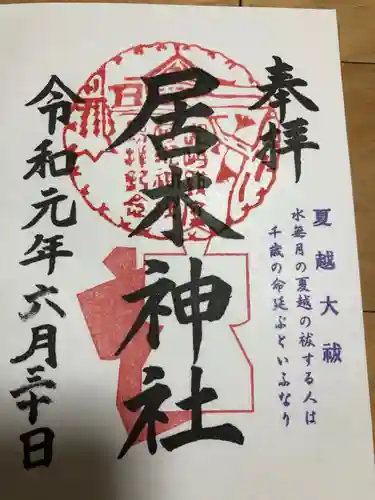 奉拝
夏越大祓
水無月の夏越の祓する人は
千歳の命延ぶといふなり
居木神社
令和元年六月三十日